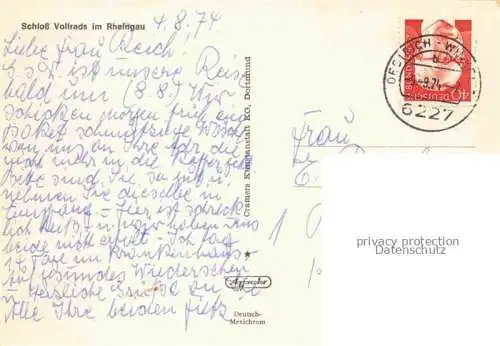 Schloß Vollrads im Rheingau
4.8.74
Liebe Frau Reich!
ist unsere Reise
bald um (8.8.) Wir
schicken morgen früh ein
Paket schmutzige Wäsche
von uns an Ihre Adr. die
nicht mehr in die Koffer
Bitte sind Sie so gut u.
nehmen Sie dieselbe in
Empfang – Hier ist schreck
lich heiß – wir haben uns
beide nicht erholt – Ich lag
14 Tage im Krankenhaus
Auf gesundes Wiedersehen
u. herzliche Grüße an Sie
Alle Ihre beiden
Cramers Kunstanstalt KG, Dortmund
Deutsch-
Mexichrom
OESTRICH-
6227
40
DEUTSCHE
Frau
1
privacy protection
Datenschutz